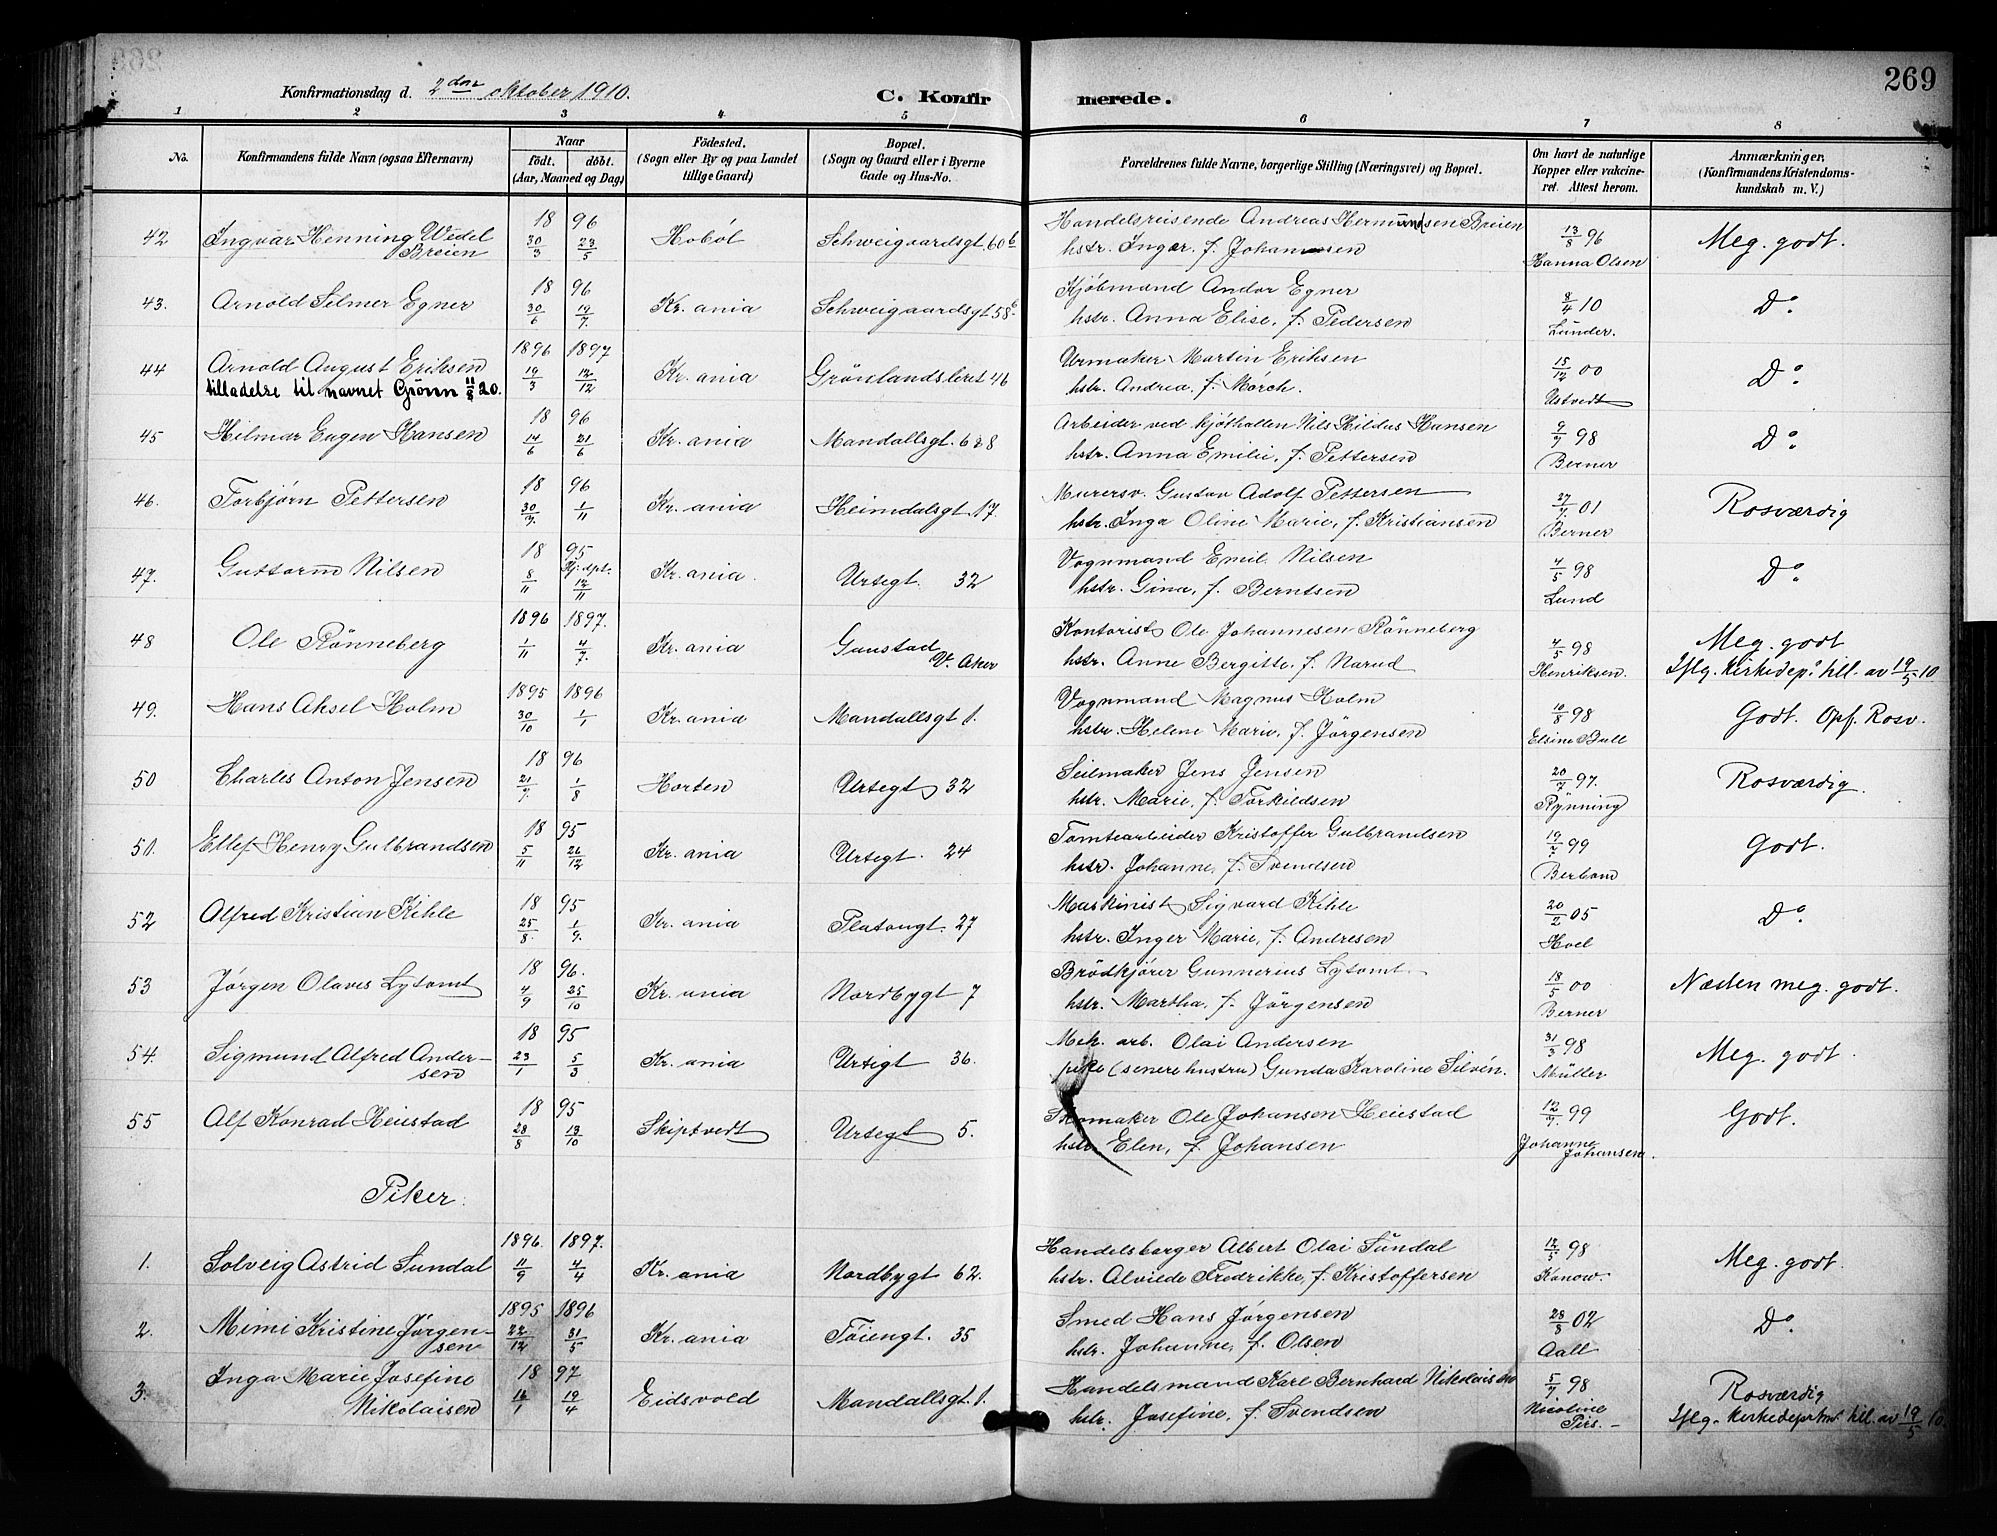 269
Konfirmationsdag d. 2den oktober 1910.
C. Konfirmerede.
1 2 3 4 5 6 7 8
No.
Konfirmandens fulde Navn (ogsaa Efternavn)
Naar
født. døbt.
(Aar, Maaned og Dag)
Fødested.
(Sogn eller By og paa Landet
tillige Gaard)
Bopæl.
(Sogn og Gaard eller i Byerne
Gade og Hus-No.
Forældrenes fulde Navne, borgerlige Stilling (Næringsvei) og Bopæl.
Om havt de naturlige
Kopper eller vakcine-
ret. Attest herom.
Anmærkninger.
(Konfirmandens Kristendoms-
kundskab m. V.)
42 Ingvar Henning Wedel Breien 18 96 30/3 23/5 Hobøl Schweigaardsgt. 60 b Handelsreisende Andreas Hermundsen Breien
hstr. Ingar, f. Johansen 13/8 96 Hanna Olsen Meg. godt.
43. Arnold Selmer Egner 18 96 30/6 19/7. Kr.ania Schweigaardsgt 58 b Kjøbmand Andor Egner
hstr. Anna Elise, f. Pedersen 8/4 10 Lunder. Do.
44 Arnold August Eriksen 1896 1897 19/3 12/12 Kr.ania Grønlandsleret 46 Urmaker Martin Eriksen
tilladelse til navnet Grönn 11/8 20. hstr. Andrea, f. Mörch. 15/12 00 Ustvedt Do.
45 Hilmar Eugen Hansen 18 96 14/6 21/6 Kr.ania Mandallsgt. 6 & 8 Arbeider ved kjøthallen Nils Hildus Hansen
hstr. Anna Emilie, f. Pettersen 9/7 98 Berner Do.
46. Torbjørn Pettersen 18 96 30/7. 1/11 Kr.ania Heimdalsgt. 17. Murersv. Gustav Adolf Pettersen
hstr. Inga Oline Marie, f. Kristiansen 27/7. 01 Berner Rosværdig
47. Guttorm Nilsen 18 95 8/11 Hj. dpt. 12/11 Kr.ania. Ursegt. 32 Vognmand Emil Nilsen
hstr. Gina, f. Berntsen 4/5 98 Lund Do.
48 Ole Rönneberg 1896 1897. 1/11 4/7. Kr.ania Gaustad V. Aker Kontorist Ole Johannesen Rönneberg
hstr. Anne Bergitte, f. Narud 4/5 98 Henriksen. Meg. godt
Iflg. Kirkedep. till. av 19/5 10
49. Hans Aksel Holm 1895 1896 30/10 1/1 Kr.ania Mandallsgt 1. Vognmand Magnus Holm
hstr. Helene Marie, f. Jørgensen 10/8 98 Elsine Bull Godt. Opf. Rosv.
50 Charles Anton Jensen 18 96 21/7. 1/8 Horten Ursegt 32 Seilmaker Jens Jensen
hstr. Marie, f. Torkildsen 20/7 97. Rynning Rosværdig.
51. Ellef Henry Gulbrandsen 18 95 5/11 26/12 Kr.ania Ursegt. 24 Tomtearbeider Kristoffer Gulbrandsen
hstr. Johanne, f. Svendsen 19/7 99 Godt.
52 Alfred Kristian Kihle 18 95 25/8. 1/9. Kr.ania Platougt. 27 Maskinist Sigvard Kihle
hstr. Inger Marie, f. Andresen 20/2 05 Hoel Do.
53 Jørgen Olaves Lytomt 18 96. 4/9 25/10 Kr.ania Nordbygt 7 Brødkjører Gunnerius Lytomt.
hstr. Martha, f. Jörgensen 18/5 00 Berner Næsten meg. godt.
54. Sigmund Alfred Andersen 18 95 23/1 5/3 Kr.ania Ursegt 36. Mek. arb. Olai Andersen
pike (senere hustru) Gunda Karoline Silvén. 31/3 98 Müller Meg. godt.
55 Alf Konrad Heistad 18 95 28/8 13/10 Skiptvedt Ursegt 5. Skomaker Ole Johansen Heistad
hstr. Elen, f. Johansen 12/7. 99 Johanne Johansen. Godt.
Piker.
1. Solveig Astrid Sundal 1896. 1897. 11/9 4/4 Kr.ania Nordbygt 62. Handelsborger Albert Olai Sundal
hstr. Alvilde Fredrikke, f. Kristoffersen 12/5 98 Kanow. Meg. godt.
2. Mimi Kristine Jørgensen 1895 1896 22/12 31/5 Kr.ania Tøiengt. 35 Smed Hans Jørgensen
hstr. Johanne, f. Olsen 28/8 02 Aall Do.
3. Inga Marie Josefine Nikolaisen 18 97 12/1 19/4 Eidsvold Mandallsgt. 1. Handelsmand Karl Bernhard Nikolaisen
hstr. Josefine, f. Svendsen 5/7 98 Nicoline Rosværdig
Iflg. Kirkedeprtm. till. av 19/5 10.